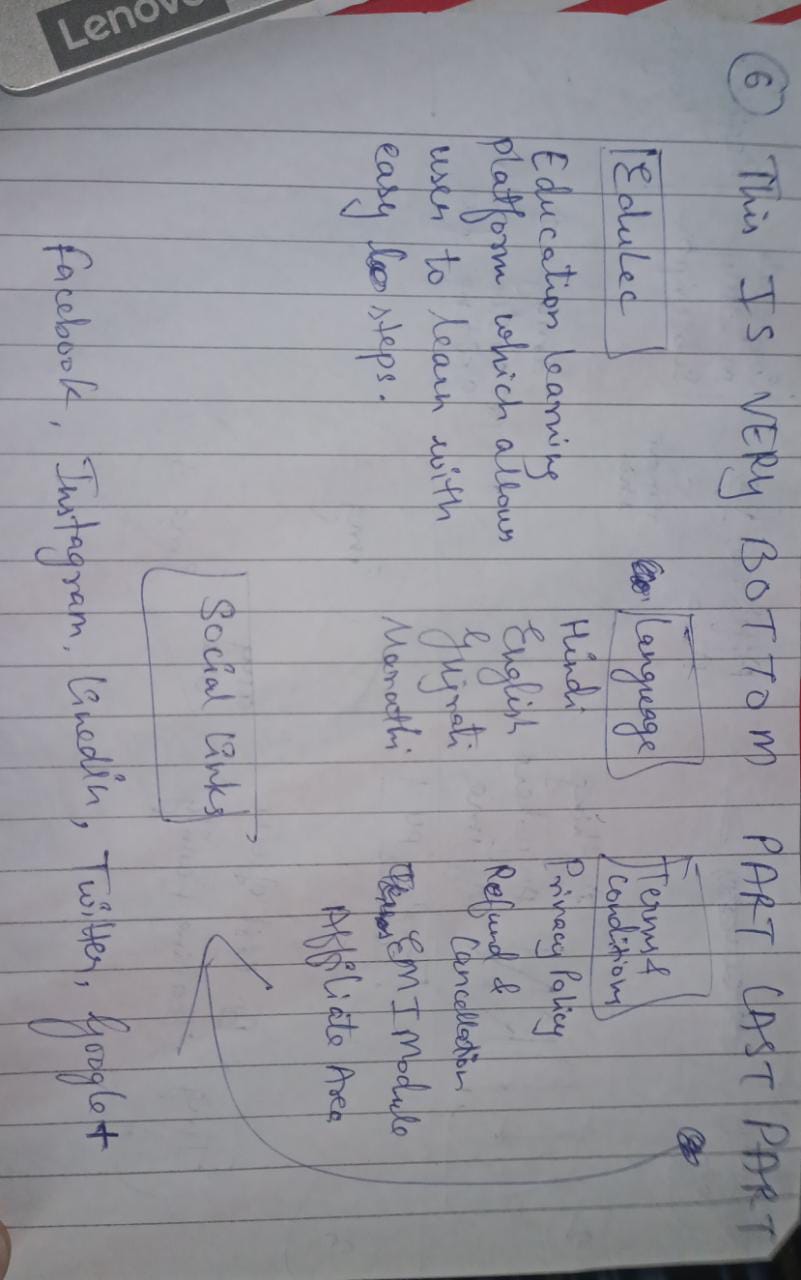 6 This IS VERY BOTTOM PART LAST PART
EduLec
Education learning
platform which allows
user to learn with
easy steps.
Language
Hindi
English
Gujrati
Marathi
Terms &
Conditions
Privacy Policy
Refund &
Cancellation
EMI Module
Affiliate Area
Social Links
facebook, Instagram, Linedin, Twitter, Google+
Lenovo